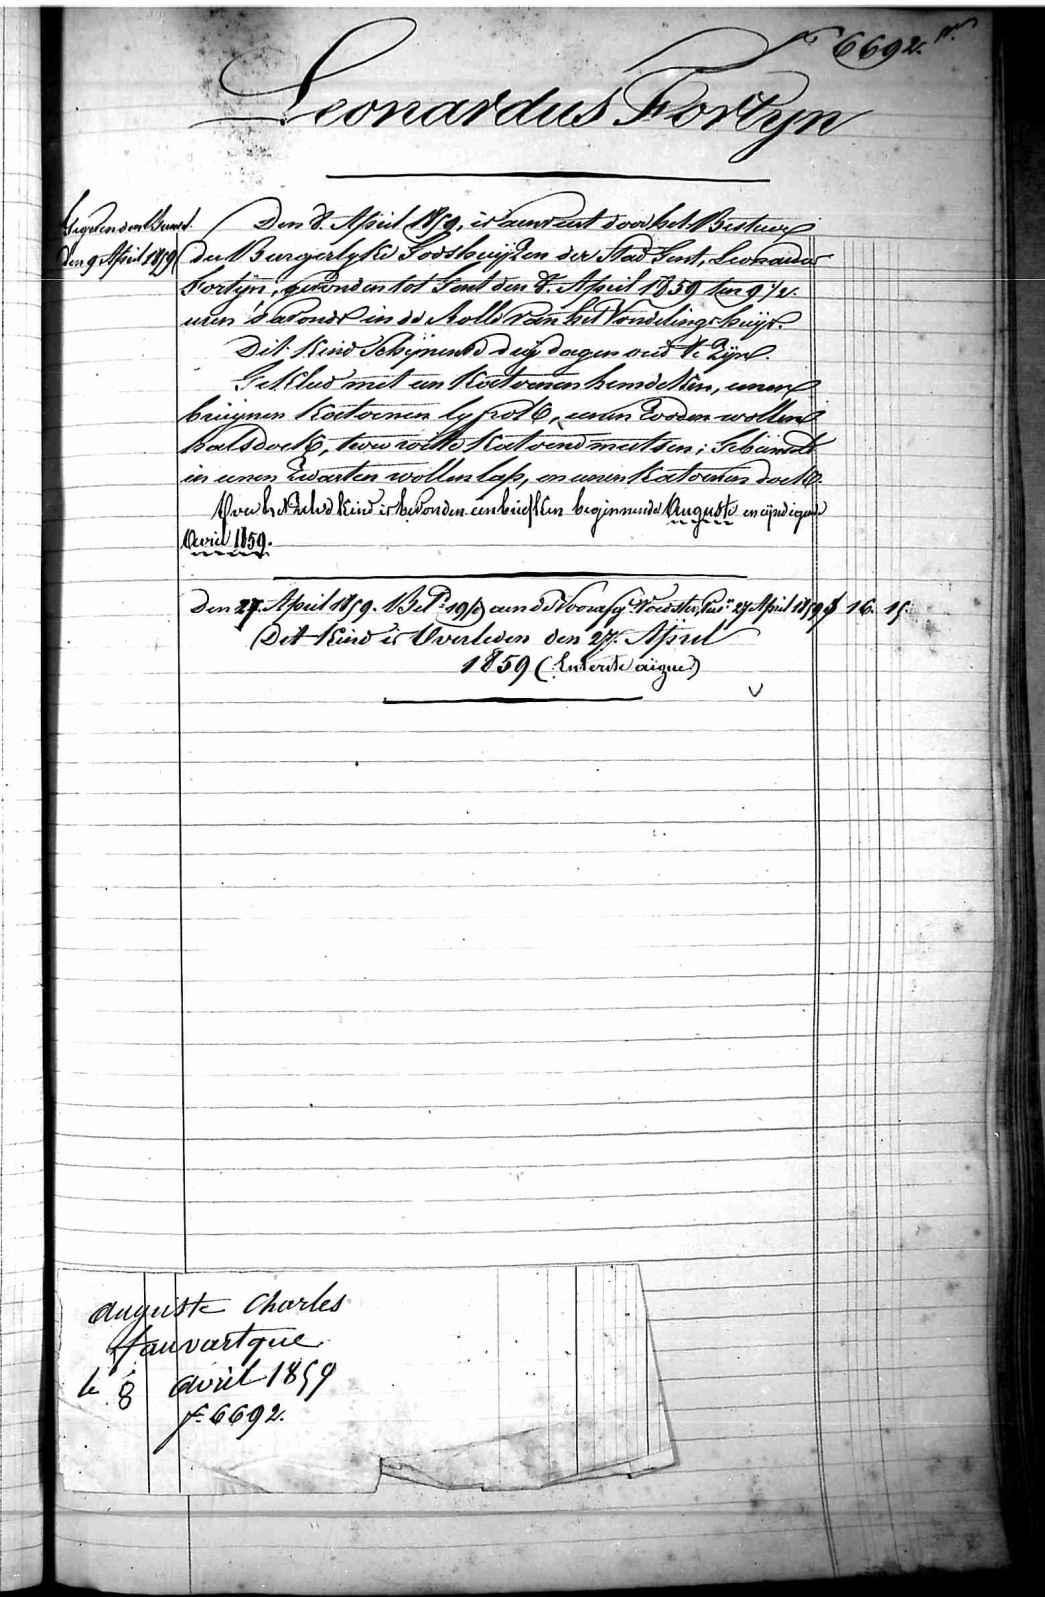 f° 6692.
Leonardus Fortyn
den 9 April 1859
Den 8. April 1859, is aenveert door het Bestuer
der Burgerlyke Godshuyzen der Stad Gent, Leonardus
Fortyn, gevonden tot Gent den 8. April 1859 ten 9 1/2.
uren 's avonds in de Rolle van het Vondelingshuys.
Dit Kind Schynende dry dagen oud te Zyn.
Gekleed met een Katoenen hemdeken, eenen
bruynen Katoenen lyfrok, eenen Rooden wollen
halsdoek, twee witte Katoene mutsen; Gebunseld
in eenen Zwarten wollen lap, en eenen Katoenen doek.
Op het Zelve Kind is bevonden een briefken beginnende Auguste en eyndigende
Avril 1859.
Den 27. April 1859. Bet. aen de Voedster, 27 April 1859 16. 15.
Dit Kind is Overleden den 27. April
1859 (Enterite aigue)
auguste Charles
le 8 avril 1859
f° 6692.